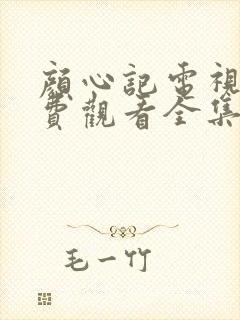 顏心記電視
費觀看全集
毛一竹